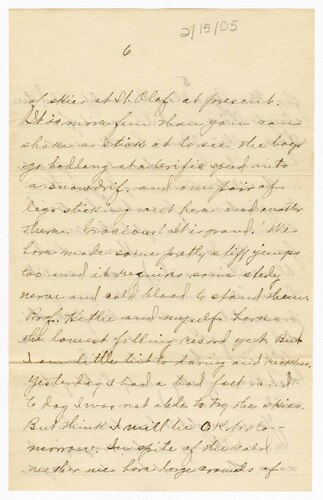 2/15/05
6
of skies at St. Olaf at present.
It is more fun than you can
shake a stick at to see the boys
go hedlong at a terific speed into
a snowdrif, and one pair of
legs sticking out here and another
there. Gracious! It is grand. We
have made some pretty stiff jumps
too and it requires some stedy
nerve and cold blood to stand them.
Prof. and myself have
the lowest falling record yet. But
I am little bit to daring and reckless.
Yesterday I had a bad fall and
to day I was not able to try the skies.
But think I will be OK for to-
morrow. In spite of the cold
wether we have large crowds of